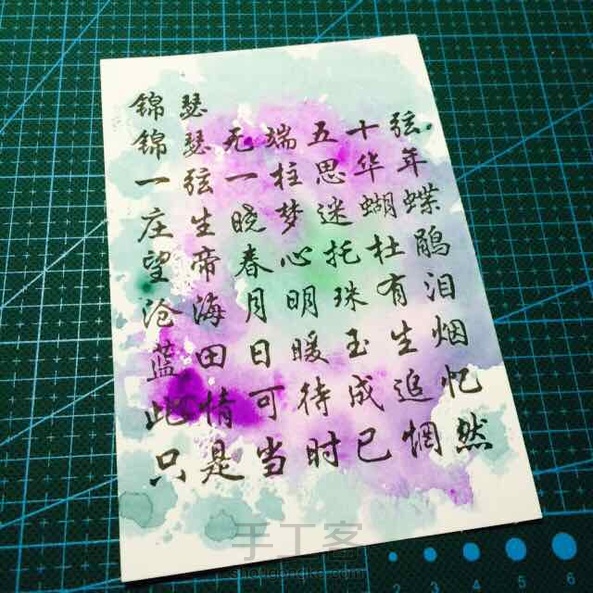 锦瑟
锦瑟无端五十弦
一弦一柱思华年
庄生晓梦迷蝴蝶
望帝春心托杜鹃
沧海月明珠有泪
蓝田日暖玉生烟
此情可待成追忆
只是当时已惘然
手工客
2 3 4 5 6